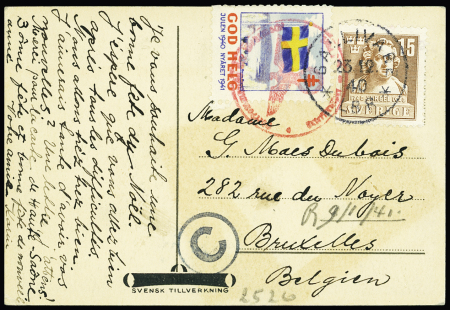 Je vous souhaite une
bonne fête du Noël
J'espère que vous allez bien
après tous les difficultés.
Nous allons très bien
J'aimerais tant d'avoir vos
nouvelles! Une lettre j'attens!
Merci pour la carte de Haute Saône
Bonne fête et bonne fête de nouvelle
année
Votre amie
GOD HELG
JULEN 1940 NYÅRET 1941
GÄLLIVARE
15
SVERIGE
Madame
G. Maes Dubois
282 rue du Noyer
R 9/1/41.
Bruxelles
Belgien
C
SVENSK TILLVERKNING
2526